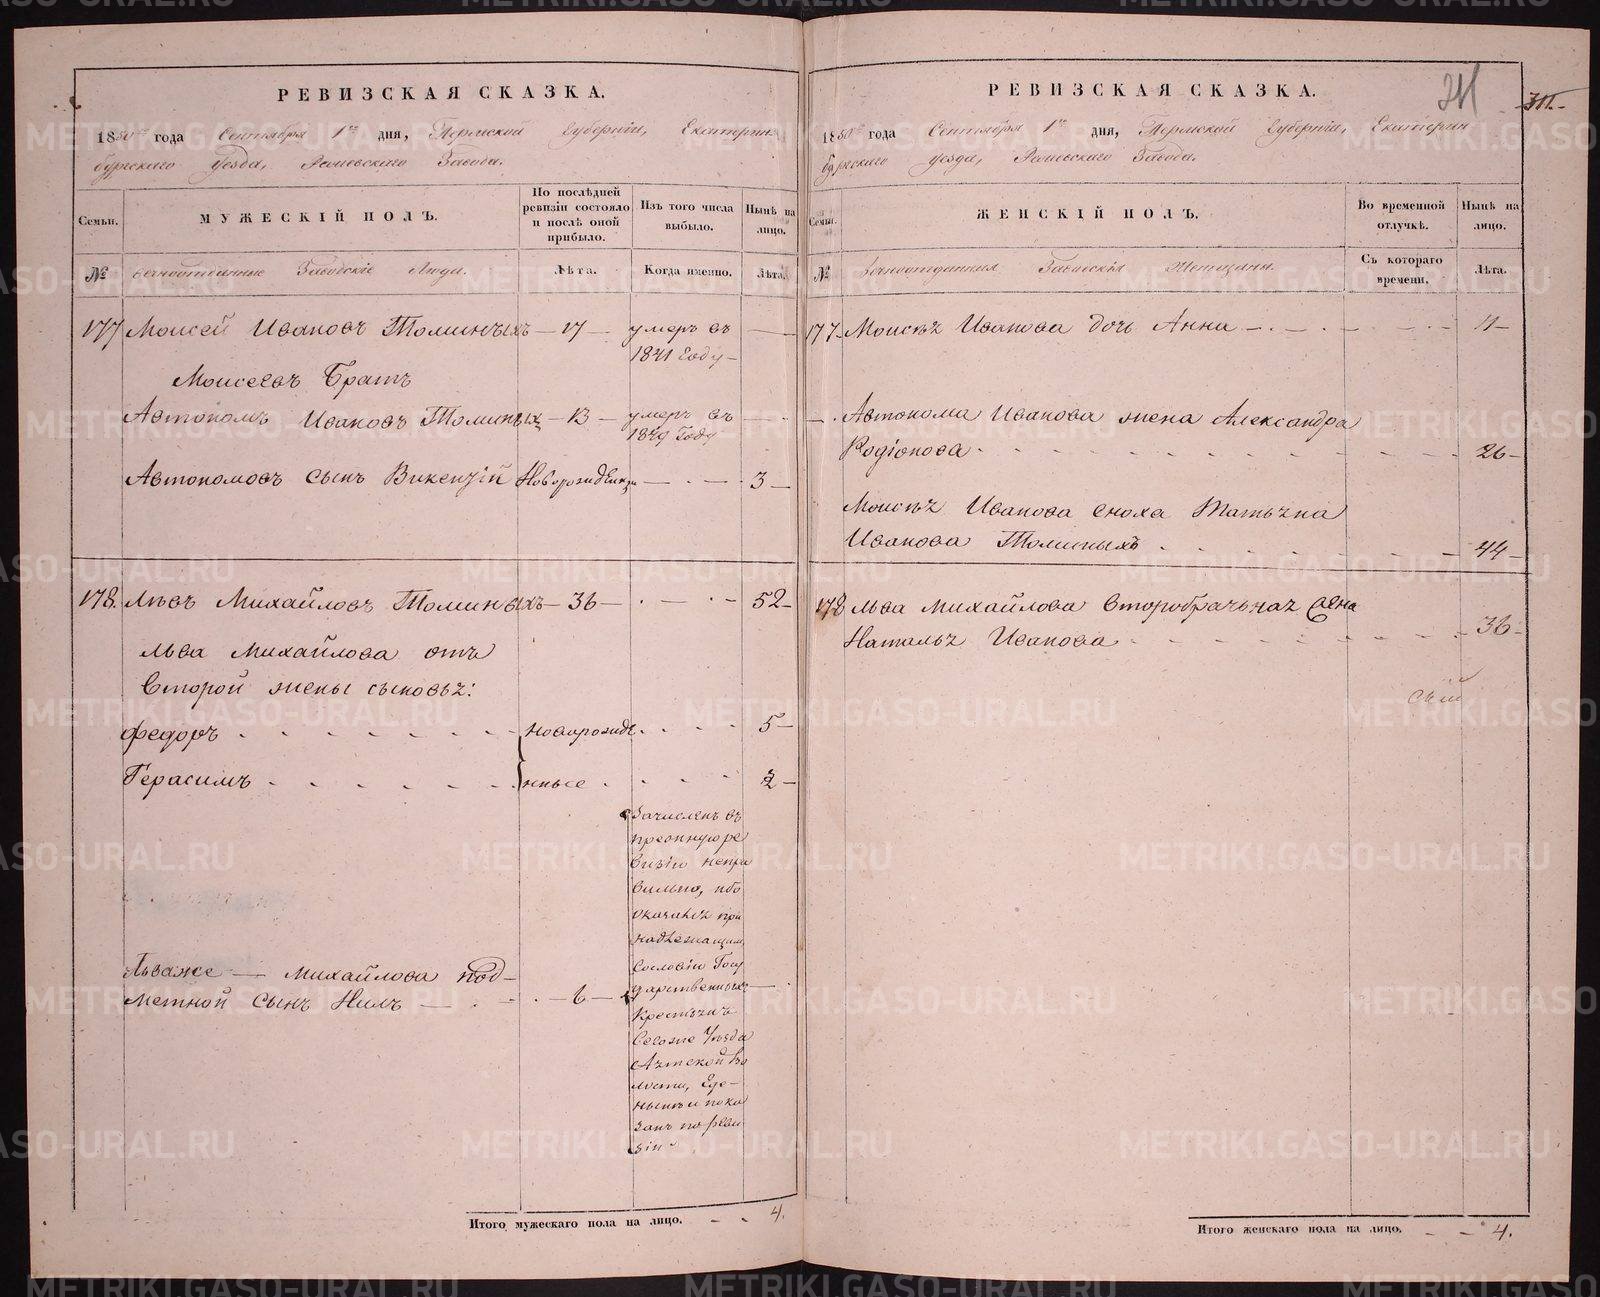 РЕВИЗСКАЯ СКАЗКА.
1850го года Сентября 1го дня, Пермской Губерніи, Екатерин
бургскаго Уезда, Завода.
Семьи.
МУЖЕСКІЙ ПОЛЪ.
По послѣдней ревизіи состояло и послѣ оной прибыло.
Изъ того числа выбыло.
Нынѣ на лицо.
№
Вечноотданные Заводскіе Люди.
Лѣта.
Когда именно.
Лѣта.
177 Моисей Ивановъ Толминыхъ — 17 — умеръ въ
1841 Году —
Моисеевъ Братъ
Автономъ Ивановъ Толминыхъ — 13 — умеръ въ
1849 Году
Автономовъ сынъ Викензій Новорожденный — 3 —
178. Львъ Михайловъ Толминыхъ — 36 — 52 —
Льва Михайлова отъ
второй жены сыновья:
Федоръ новорожде 5 —
Герасимъ нные 2 —
Зачисленъ въ
прежнюю ре
визію непра
вильно, ибо
оказался при
надлежащимъ
Сословію Госу
дарственныхъ
Крестьянъ
Льваже — Михайлова под-
метной сынъ Нилъ — 6 —
Тогоже Уѣзда
Аятской во
лости, Где
нынѣ и пока
занъ по реви
зіи
Итого мужескаго пола на лицо. 4.
РЕВИЗСКАЯ СКАЗКА.
241
311
1850го года Сентября 1го дня, Пермской Губерніи, Екатерин
бургскаго уезда, Завода.
Семьи.
ЖЕНСКІЙ ПОЛЪ.
Во временной отлучкѣ.
Нынѣ на лицо.
№
Вечноотданныя Заводскія Женщины.
Съ котораго времени.
Лѣта.
177. Моисея Иванова дочь Анна — 11 —
Автонома Иванова жена Александра
Родіонова 26 —
Моисея Иванова сноха Татьяна
Иванова Толминыхъ 44 —
178 Льва Михайлова второбрачьная жена
Наталья Иванова 36 —
Итого женскаго пола на лицо. 4.
METRIKI.GASO-URAL.RU